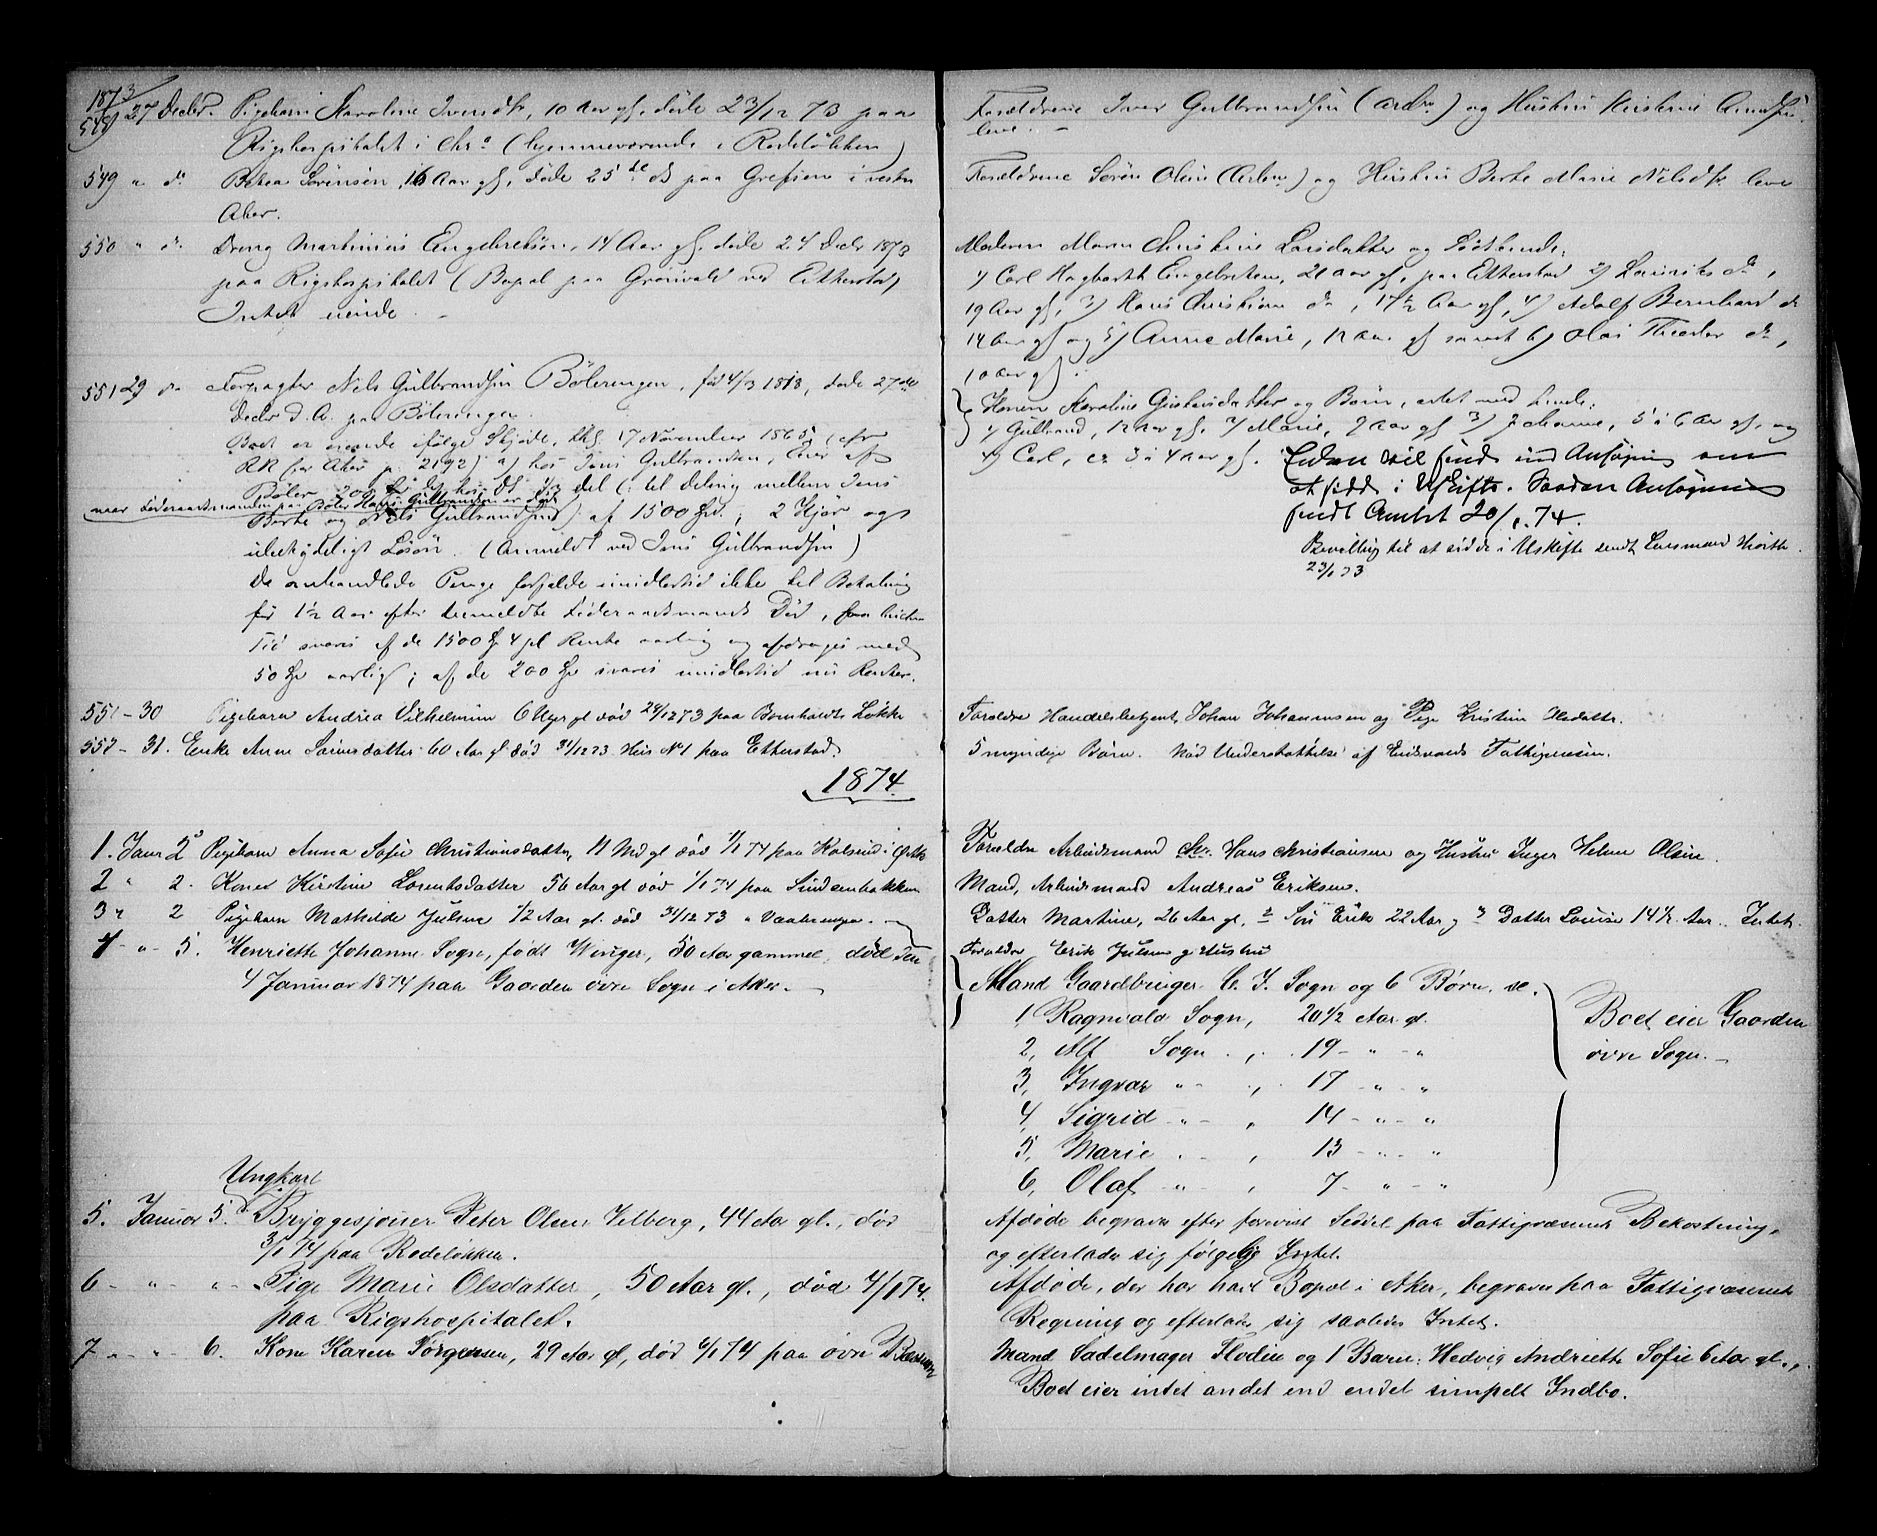 1873
548 27 Decbr. Pigebarn Karoline Iversdtr, 10 Aar gl. døde 23/12 73 paa
Rigshospitalet i Chra (hjemmeværende i Rodeløkken)
549 " do Sørensen, 16 Aar gl, døde 25de ds paa Grefsen i vestre
Aker.
550 " do Dreng Martinius Engebretsen, 14 Aar gl, døde 24 Decbr 1873
paa Rigshospitalet (Bopæl paa Grønvold ved Etterstad)
Intet eiende.
551 29 do Forpagter Nils Gulbrandsen Bøleringen, fød 4/3 1813, døde 27de
Decbr d. A. paa Bøleringen.
Boet er eiende ifølge Skjøde, thgl. 17 November 1865
Berte og Nils Gulbrandsen) af 1500 Spd.; 2 Kjør og
ubetydeligt Løsøre. (Anmeldt ved Jens Gulbrandsen)
De omhandlede Penge forfalde imidlertid ikke til Betaling
før 1½ Aar efter bemeldte Føderaadsmands Død,
Tid svares af de 1500 Spd 4 pCt Rente aarlig og afdrages med
50 Spd aarlig; af de 200 Spd svares imidlertid ei Renter.
551 - 30 Pigebarn Andrea Vilhelmine 6 Uger gl død 28/12 73 paa Bomholdts Løkke
552 - 31. Enke Anne 60 Aar gl død 31/12 73 Hus No 1 paa Etterstad.
1874.
1. Janr 2 Pigebarn Anna Sofie Christiansdatter, 11 Md gl død 1/1 74 paa Kolsrud i
2 " 2. Kone Kirstine Lorentsdatter 56 Aar gl død 1/1 74 paa Sinsenbakken
3 " 2 Pigebarn Mathilde Julsen 1/2 Aar gl. død 31/12 73 " Vaalerengen.
4 - " - 5. Henriette Johanne Sogn, født Winger, 50 Aar gammel, død den
4 Januar 1874 paa Gaarden øvre Sogn i Aker.
Ungkarl
5. Januar 5. Bryggesjouer Peter Olsen Velberg, 44 Aar gl., død
3/1 74 paa Rodeløkken.
6 - " - " - Pige Marie Olsdatter, 50 Aar gl., død 4/1 74.
paa Rigshospitalet.
7 - " - 6. Kone Karen Jørgensen, 29 Aar gl, død 6/1 74 paa øvre
Forældrene Iver Gulbrandsen (arbm) og Hustru Kirstine
leve. -
Forældrene Søren Olsen (Arbm) og Hustru Berte Marie Nilsdtr leve
Moderen Maren Christine Larsdatter og Søskende:
1) Carl Hagbarth Engebretsen, 21 Aar gl, paa Etterstad 2) Laurits do,
19 Aar gl, 3) Hans Christian do, 17½ Aar gl, 4) Adolf Bernhard do
14 Aar gl og 5) Anne Marie, 12 Aar gl samt 6) Olai Theodor do,
10 Aar gl.
Konen Karoline Gustavsdatter og Børn, avlet med hende:
1) Gulbrand, 12 Aar gl, 2) Marie, 9 Aar gl 3) Johanne, 5 à 6 Aar gl, og
4) Carl, ca 3 à 4 Aar gl. Enken vil sende ind Ansøgning om
at sidde i Uskifte. Saadan Ansøgning
sendt Amtet 20/1. 74.
Bevilling til at sidde i Uskifte sendt Lensmand
23/1 73
Forældre Handelsbetjent Johan Johannesen og Pige Kristine
5 myndige Børn. Nød Understøttelse af Eidsvolds Fattigvæsen.
Forældre Arbeidsmand Chr. Hans Christiansen og Hustru Inger Helene Olsen.
Mand, Arbeidsmand Andreas Eriksen.
Datter Martine, 26 Aar gl, 2 Søn Erik 22 Aar, 3 Datter Louise 14½ Aar. Intet.
Forældre Erik Julsen og Hustru
Mand Gaardbruger C. J. Sogn og 6 Børn.
1, Ragnvald Sogn, 20 1/2 Aar gl.
2, Alf Sogn, 19 - " - "
3, Ingvar " - , 17 - " - "
4, Sigrid - " - , 14 - " - "
5, Marie - " - , 13 - " - "
6, Olaf - " - , 7 - " - "
Boet eier Gaarden
øvre Sogn. -
Afdøde begraves efter forevist Seddel paa Fattigvæsenets Bekostning,
og efterlader sig følgelig Intet.
Afdøde, der har havt Bopæl i Aker, begraves paa Fattigvæsenets
Regning og efterlader sig saaledes Intet.
Mand Sadelmager Flodin og 1 Barn: Hedvig Andriette Sofie 6 Aar gl.,
Boet eier intet andet end endel simpelt Indbo.